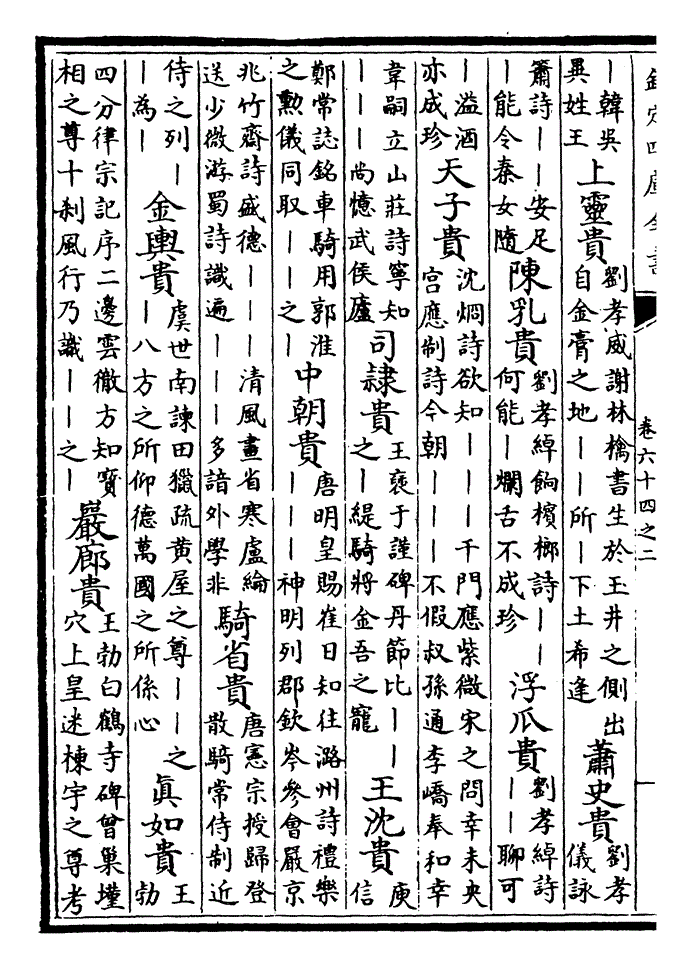 欽定四庫全書
卷六十四之二
｜韓吳
異姓王
上靈貴
劉孝威謝林檎書生於玉井之側出
自金膏之地｜｜所｜下土希逢
蕭史貴
劉孝
儀詠
簫詩｜｜安足
｜能令秦女隨
陳乳貴
劉孝綽餉檳榔詩｜｜
何能｜爛舌不成珍
浮瓜貴
劉孝綽詩
｜｜聊可
｜溢酒
亦成珍
天子貴
沈烱詩欲知｜｜｜千門應紫微宋之問幸未央
宫應制詩今朝｜｜｜不假叔孫通李嶠奉和幸
韋嗣立山莊詩寧知
｜｜｜尚憶武侯廬
司隸貴
王褒于謹碑丹節比｜｜
之｜緹騎將金吾之寵
王沈貴
庾
信
鄭常誌銘車騎用郭淮
之勲儀同取｜｜之｜
中朝貴
唐明皇賜崔日知往潞州詩禮樂
｜｜｜神明列郡欽岑參會嚴京
兆竹齋詩盛德｜｜｜清風畫省寒盧綸
送少微游蜀詩識遍｜｜｜多諳外學非
騎省貴
唐憲宗授歸登
散騎常侍制近
侍之列｜
｜為｜
金輿貴
虞世南諫田獵疏黄屋之尊｜｜之
｜八方之所仰德萬國之所係心
真如貴
王
勃
四分律宗記序二邊雲徹方知寶
相之尊十刹風行乃識｜｜之｜
巖廊貴
王勃白鶴寺碑曾巢墐
穴上皇迷棟宇之尊考